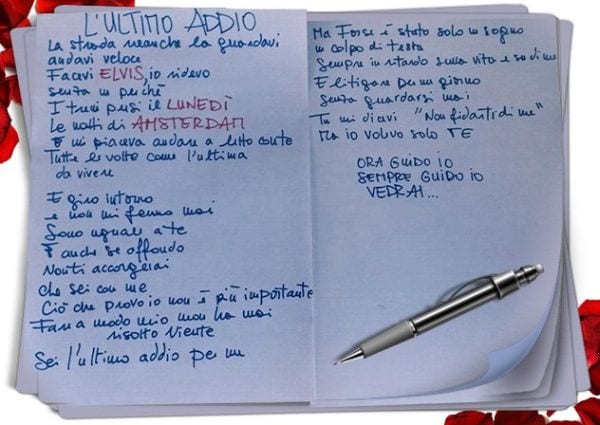 L'ULTIMO ADDIO
La strada neanche la guardavi
andavi veloce
Facevi ELVIS, io ridevo
senza un perché
I treni presi il LUNEDÌ
Le notti di AMSTERDAM
E mi piaceva andare a letto con te
Tutte le volte come l'ultima
da vivere
E giro intorno
e non mi fermo mai
Sono uguale a te
E anche se affondo
Non ti accorgerai
che sei con me
Ciò che provo io non è più importante
Fare a modo mio non ha mai
risolto niente
Sei l'ultimo addio per me
Ma Forse è stato solo un sogno
un colpo di testa
Sempre in ritardo sulla vita e su di me
E litigare per un giorno
senza guardarsi mai
Tu mi dicevi "Non fidarti di me"
Ma io volevo solo TE
ORA GUIDO IO
SEMPRE GUIDO IO
VEDRAI...